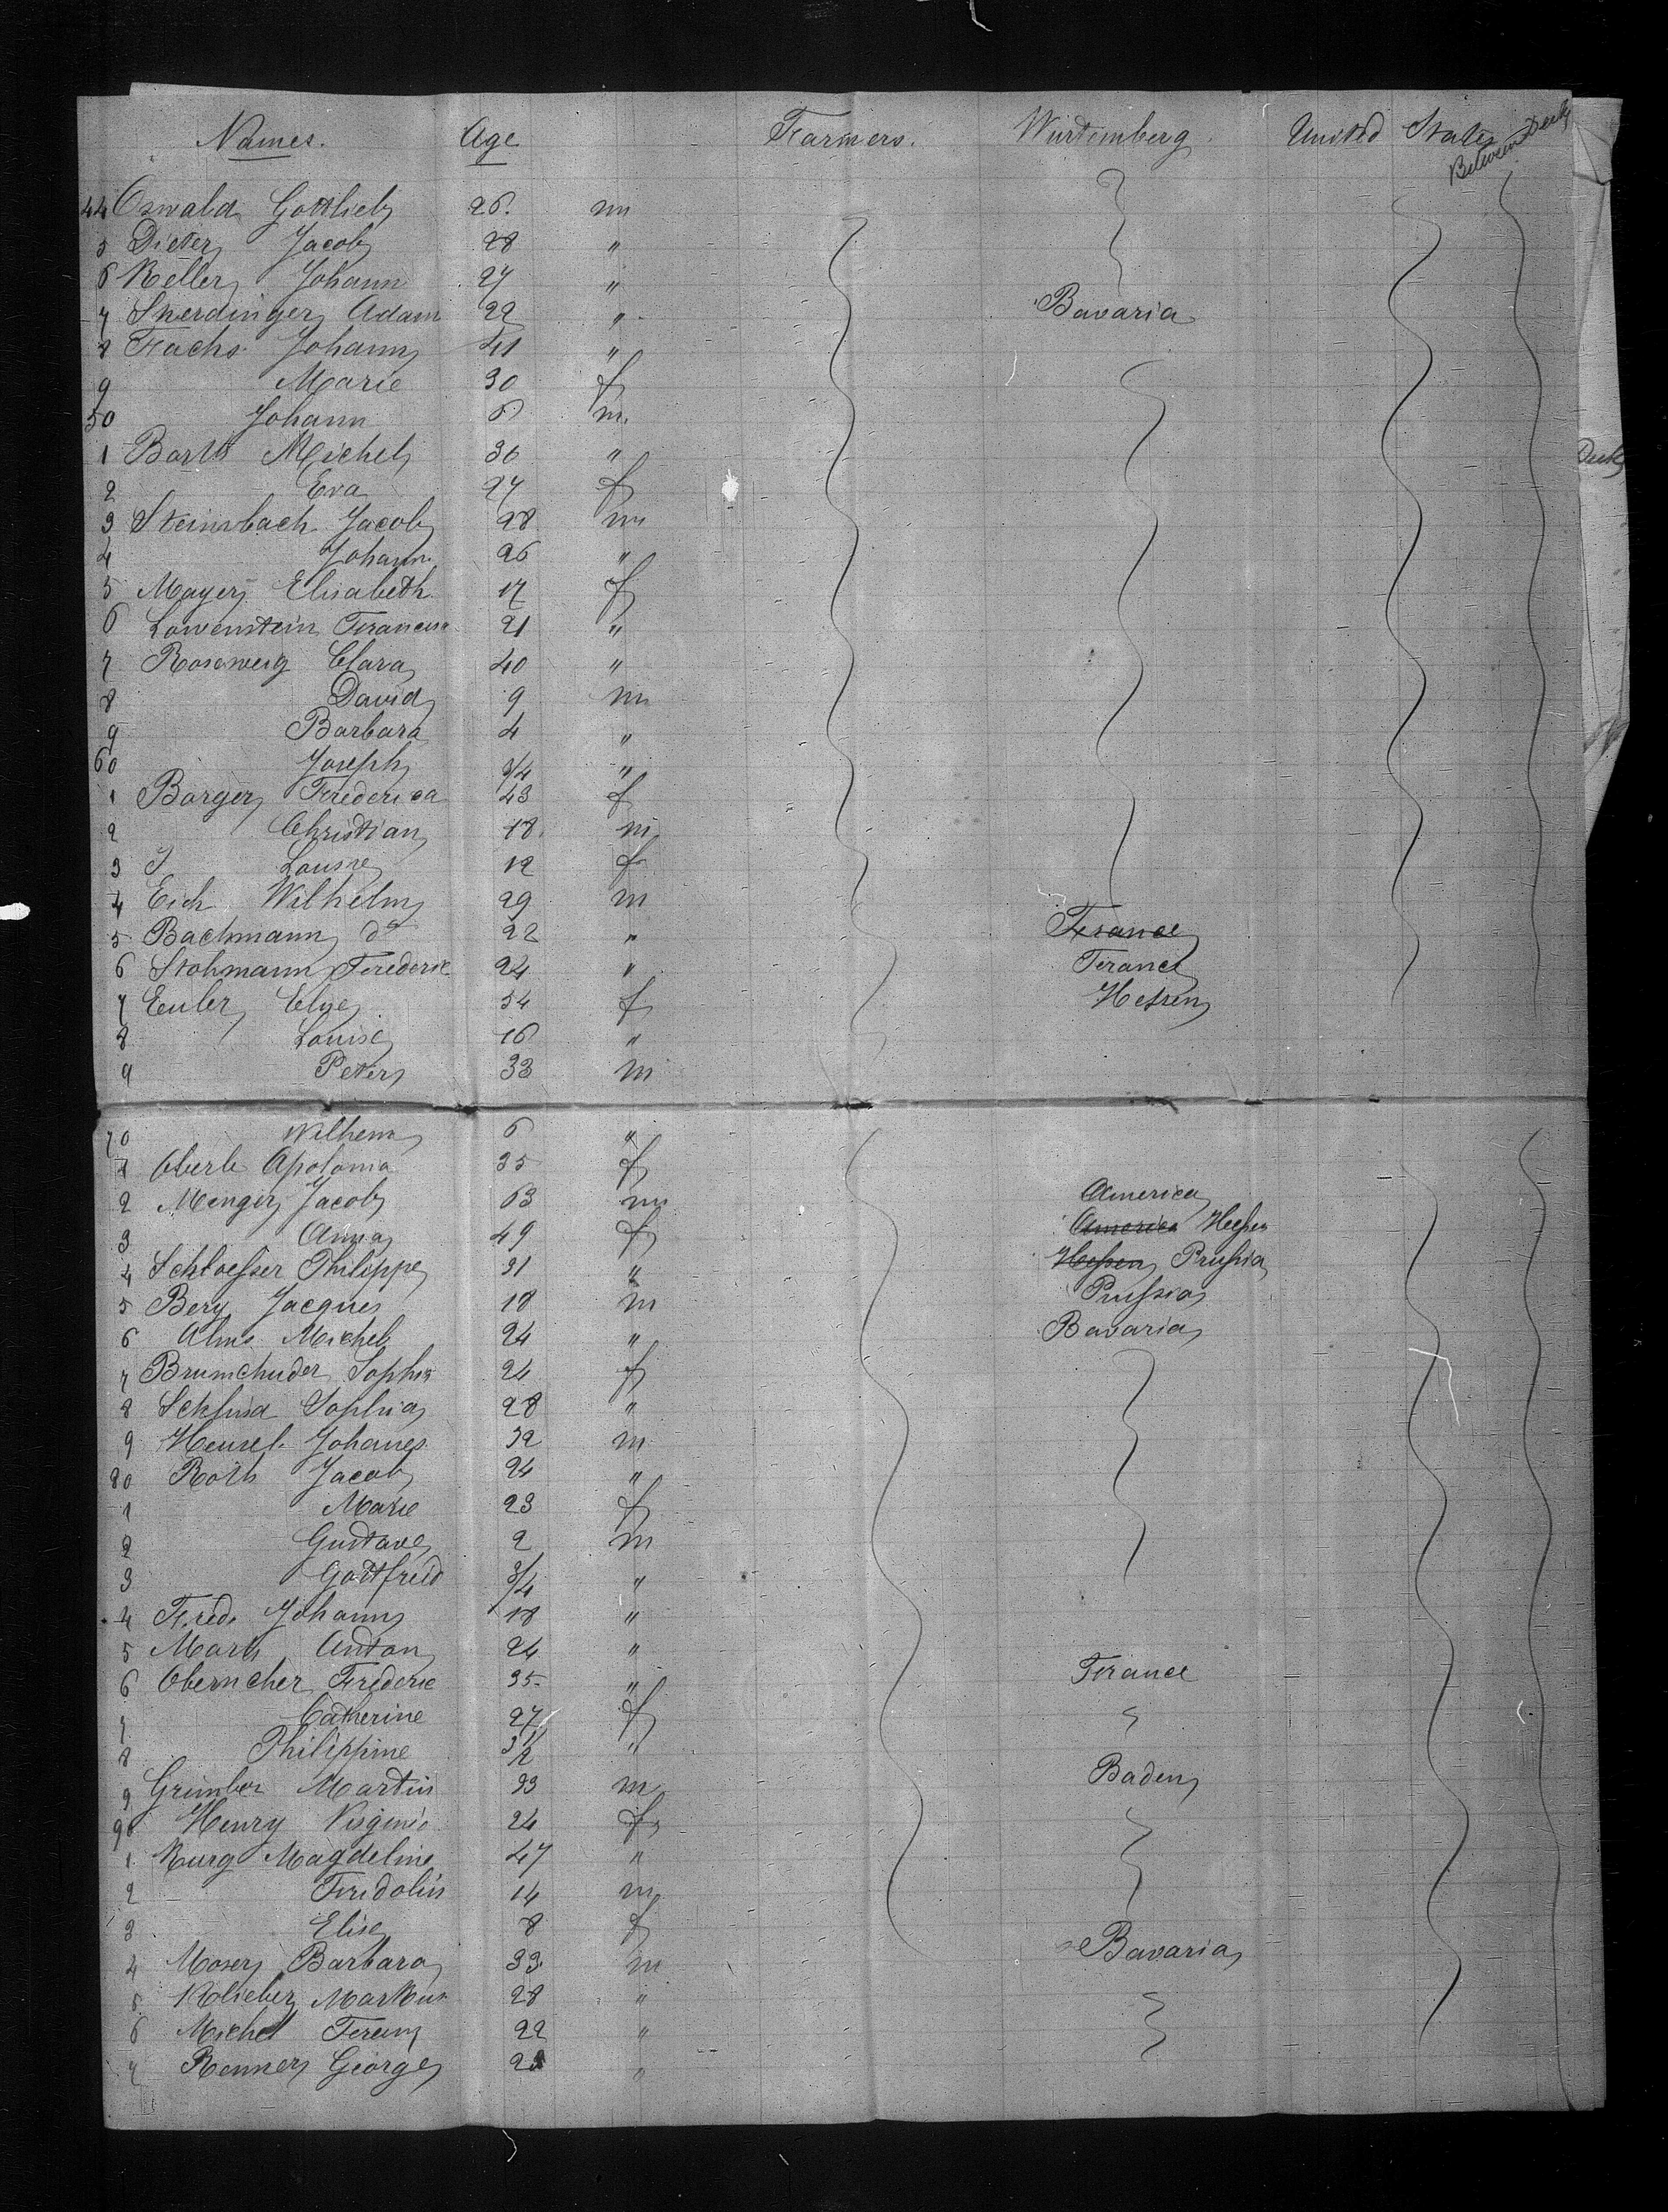 Names. Age Farmers. Würtemberg. United States Between Deck
44 Oswald Gottlieb 26. m
5 Dieter Jacob 28 "
6 Keller Johann 27 "
7 Sherdinger Adam 22 " Bavaria
8 Fuchs Johann 41 "
9 Marie 30 f
50 Johann 6 m.
1 Barth Michel 36 "
2 Eva 27 f
3 Steinbach Jacob 28 m
4 Johann 26 "
5 Mayer Elisabeth 17 f
6 Lowenstein 21 "
7 Rosenweig Clara 40 "
8 David 9 m
9 Barbara 4 "
60 Joseph 3/4 "
1 Borger Frederica 43 f
2 Christian 18. m
3 12 f
4 Eich Wilhelm 29 m
5 Bachmann do 22 " France
6 Stohmann Frederic 24 " France
7 Euler 54 f Hessen
8 Louise 16 "
9 Peter 33 m
70 Wilhem 6 "
71 Oberle Apolonia 35 f
2 Menger Jacob 63 m America
3 Anna 49 f America Hessen
4 Schloesser Philippe 31 " Hessen Prussia
5 Bery Jacques 18 m Prussia
6 Alms Michel 24 " Bavaria
7 Sophia 24 f
8 Sophia 28 "
9 Hensel Johanes 32 m
80 Roth Jacob 24 "
1 Marie 23 f
2 Gustave 2 m
3 Gottfried 3/4 "
4 Fred. Johann 18 "
5 Marth Anton 24 "
6 Frederic 35 " France
7 Catherine 27 f
8 Philippine 3 1/2 "
9 Grimber Martin 33 m Baden
90 Henry Virginie 24 f
1 Kurg Magdeline 47 "
2 Fridolin 14 m
3 Elise 8 f
4 Moser Barbara 33 m Bavaria
5 Klieber Markus 28 "
6 Michel 22 "
7 Renner George "
Deck